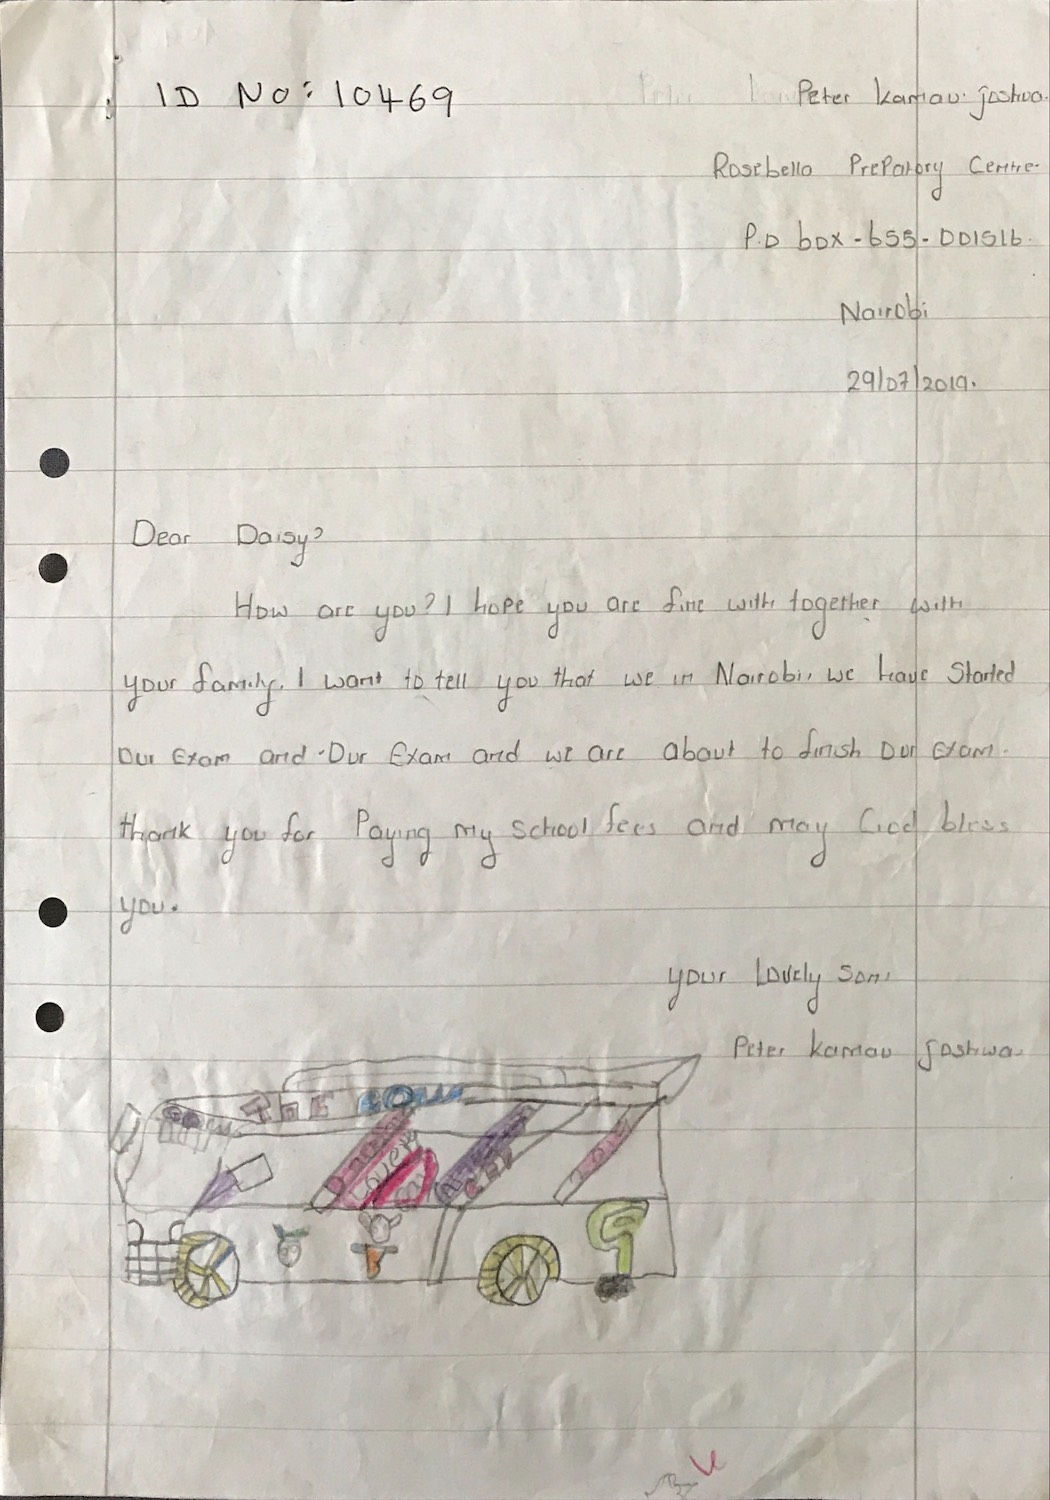 ID No: 10469
Peter kamau joshwa.
Rosebella PrePatory Centre.
P.O box - 655 - 001516.
Nairobi
29/07/2019.
Dear Daisy?
How are you? I hope you are fine with together with
your family. I want to tell you that we in Nairobi, we have Started
Our Exam and Our Exam and we are about to finish our Exam.
thank you for Paying my School fees and may God bless
you.
your Lovely Son,
Peter kamau joshwa.
THE
9